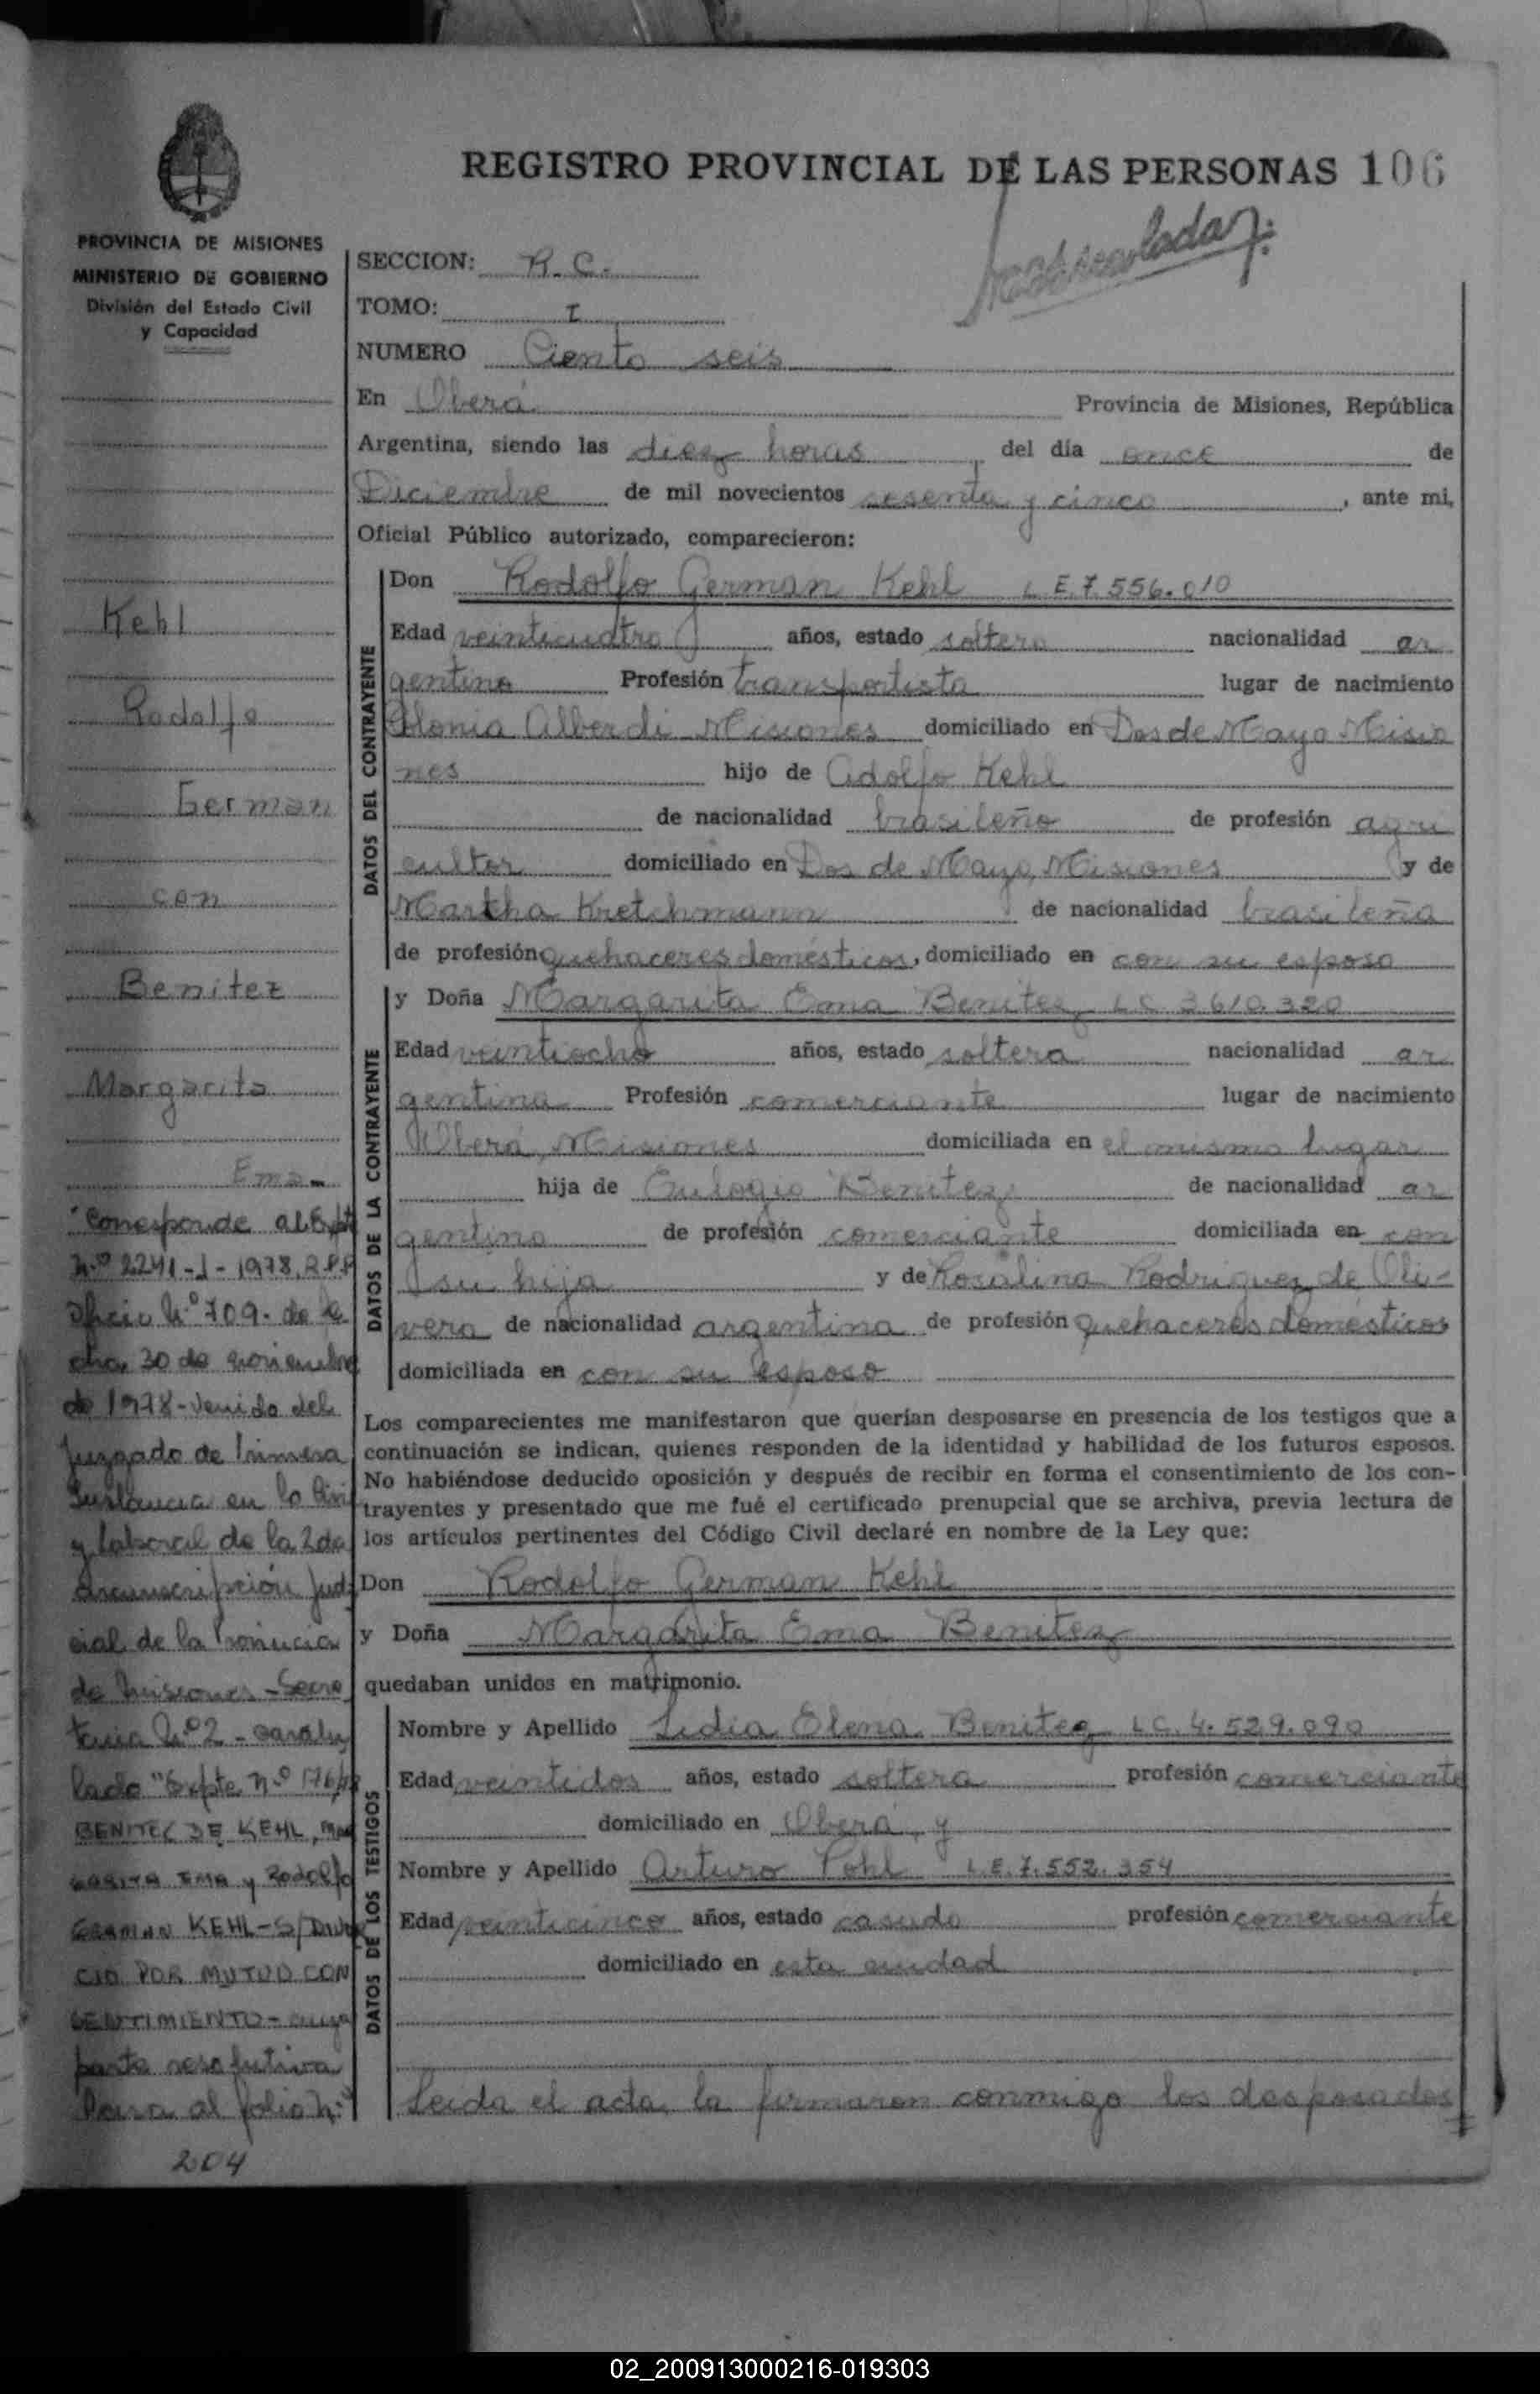 REGISTRO PROVINCIAL DE LAS PERSONAS 106
PROVINCIA DE MISIONES
MINISTERIO DE GOBIERNO
División del Estado Civil
y Capacidad
Kehl
Rodolfo
German
con
Benitez
Margarita
Ema-
Corresponde al Expte
Nº 2241-J-1978. R.P.P
Oficio Nº 709. de fe
cha 30 de noviembre
de 1978 - venido del
Juzgado de Primera
Instancia en lo Civil
y laboral de la 2da
circunscripción Judi
cial de la Provincia
de Misiones - Secre
taria Nº 2 - caratu
lado "Expte Nº 176/78
BENITEZ DE KEHL, MAR
GARITA EMA y Rodolfo
GERMAN KEHL - S/DIVOR
CIO POR MUTUO CON
SENTIMIENTO - cuya
parte resolutiva
al folio Nº
204
SECCION: R. C.
TOMO: I
NUMERO Ciento seis
En Oberá Provincia de Misiones, República
Argentina, siendo las diez horas, del día once de
Diciembre de mil novecientos sesenta y cinco, ante mi,
Oficial Público autorizado, comparecieron:
DATOS DEL CONTRAYENTE
Don Rodolfo German Kehl L.E. 7.556.010
Edad veinticuatro años, estado soltero nacionalidad ar
gentino Profesión transportista lugar de nacimiento
Colonia Alberdi Misiones domiciliado en Dos de Mayo Misio
nes hijo de Adolfo Kehl
de nacionalidad brasileño de profesión agri
cultor domiciliado en Dos de Mayo, Misiones y de
Martha Kretchmann de nacionalidad brasileña
de profesión quehaceres domésticos, domiciliado en con su esposo
DATOS DE LA CONTRAYENTE
y Doña Margarita Ema Benitez L.C. 3.610.320
Edad veintiocho años, estado soltera nacionalidad ar
gentina Profesión comerciante lugar de nacimiento
Oberá, Misiones domiciliada en el mismo lugar
hija de Eulogio Benitez de nacionalidad ar
gentino de profesión comerciante domiciliada en con
su hija y de Rosalina Rodriguez de Oli-
vera de nacionalidad argentina de profesión quehaceres domésticos
domiciliada en con su esposo
Los comparecientes me manifestaron que querían desposarse en presencia de los testigos que a
continuación se indican, quienes responden de la identidad y habilidad de los futuros esposos.
No habiéndose deducido oposición y después de recibir en forma el consentimiento de los con-
trayentes y presentado que me fué el certificado prenupcial que se archiva, previa lectura de
los artículos pertinentes del Código Civil declaré en nombre de la Ley que:
Don Rodolfo German Kehl
y Doña Margarita Ema Benitez
quedaban unidos en matrimonio.
DATOS DE LOS TESTIGOS
Nombre y Apellido Lidia Elena Benitez L.C. 4.529.090
Edad veintidos años, estado soltera profesión comerciante
domiciliado en Oberá, y
Nombre y Apellido Arturo Pohl L.E. 7.552.354
Edad veinticinco años, estado casado profesión comerciante
domiciliado en esta ciudad
Leida el acta, la firmaron conmigo los desposados
02_200913000216-019303